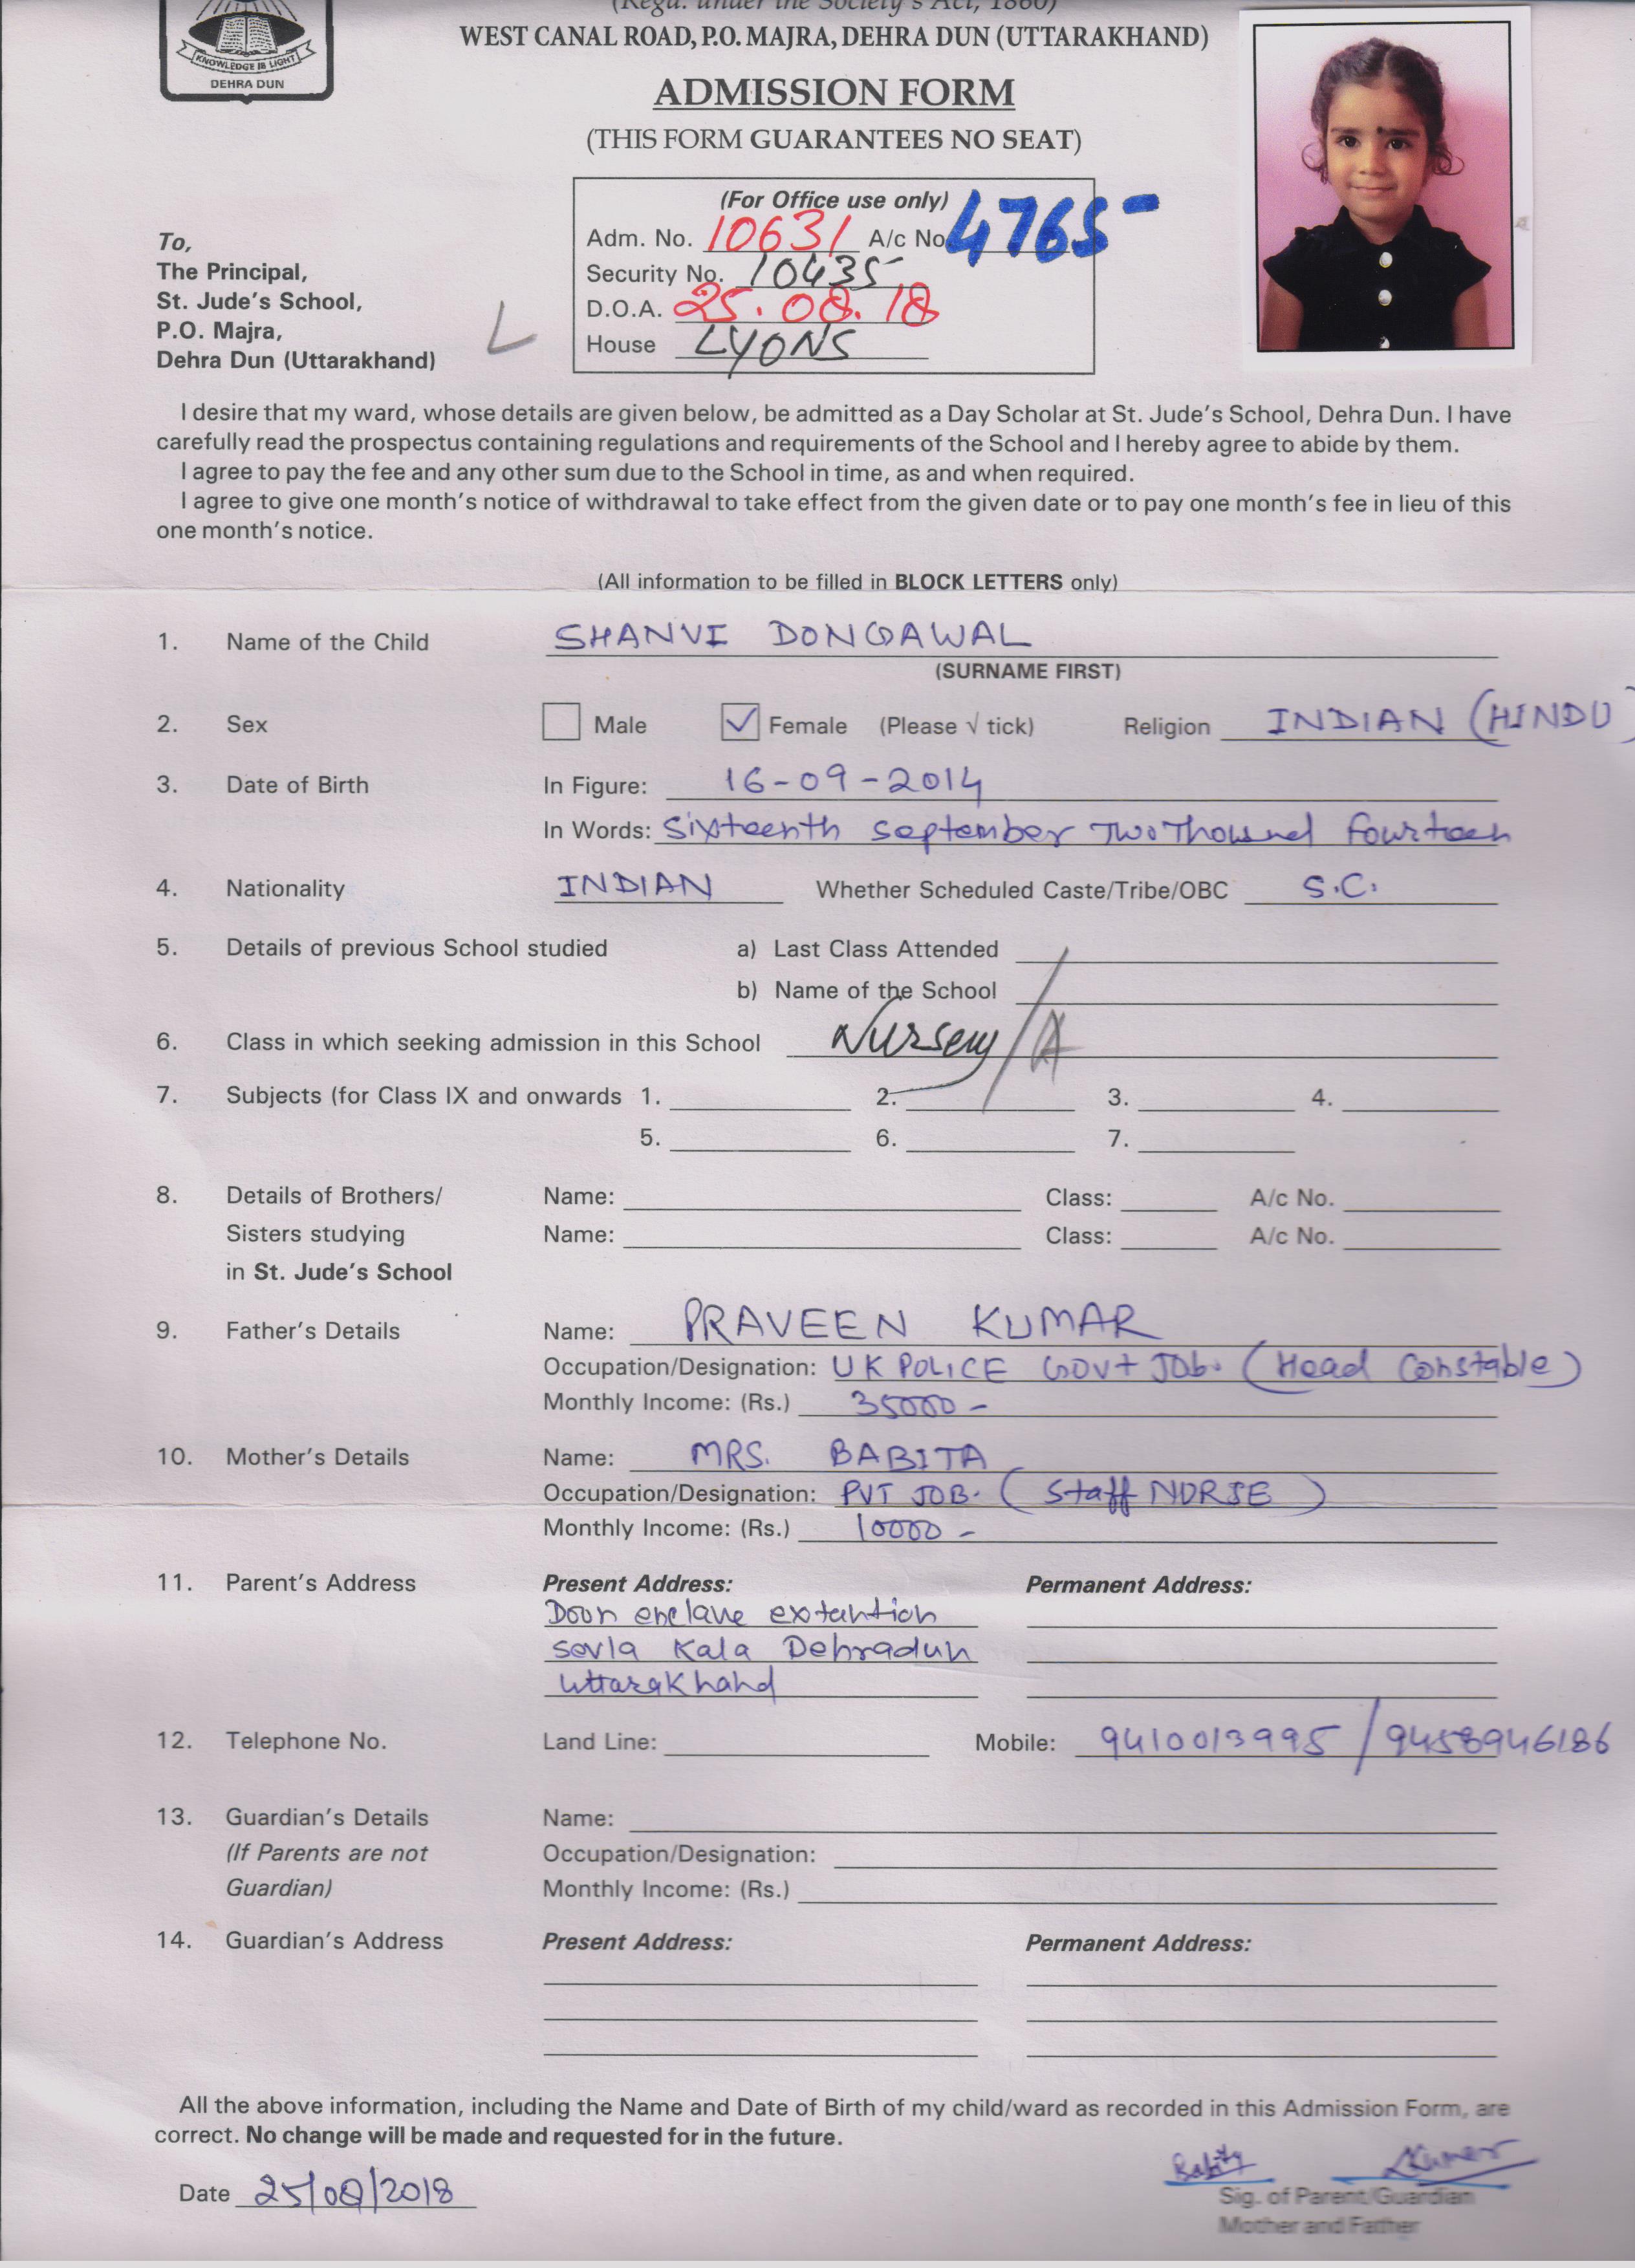 (Regd. under the Society's Act, 1860)
WEST CANAL ROAD, P.O. MAJRA, DEHRA DUN (UTTARAKHAND)
KNOWLEDGE IS LIGHT
DEHRA DUN
ADMISSION FORM
(THIS FORM GUARANTEES NO SEAT)
(For Office use only)
Adm. No. 10631 A/c No 4765-
Security No. 10435
D.O.A. 25.08.18
House LYONS
To,
The Principal,
St. Jude's School,
P.O. Majra,
Dehra Dun (Uttarakhand)
I desire that my ward, whose details are given below, be admitted as a Day Scholar at St. Jude's School, Dehra Dun. I have
carefully read the prospectus containing regulations and requirements of the School and I hereby agree to abide by them.
I agree to pay the fee and any other sum due to the School in time, as and when required.
I agree to give one month's notice of withdrawal to take effect from the given date or to pay one month's fee in lieu of this
one month's notice.
(All information to be filled in BLOCK LETTERS only)
1. Name of the Child SHANVI DONGAWAL
(SURNAME FIRST)
2. Sex Male ✓ Female (Please √ tick) Religion INDIAN (HINDU)
3. Date of Birth In Figure: 16-09-2014
In Words: Sixteenth September Two Thousnd Fourteen
4. Nationality INDIAN Whether Scheduled Caste/Tribe/OBC S.C.
5. Details of previous School studied a) Last Class Attended
b) Name of the School
6. Class in which seeking admission in this School Nursery/A
7. Subjects (for Class IX and onwards 1. 2. 3. 4.
5. 6. 7.
8. Details of Brothers/ Name: Class: A/c No.
Sisters studying Name: Class: A/c No.
in St. Jude's School
9. Father's Details Name: PRAVEEN KUMAR
Occupation/Designation: UK POLICE GOVT JOb. (Head Constable)
Monthly Income: (Rs.) 35000 -
10. Mother's Details Name: MRS. BABITA
Occupation/Designation: PVT JOB. (Staff NURSE)
Monthly Income: (Rs.) 10000 -
11. Parent's Address Present Address: Permanent Address:
Doon enclave extantion
Sevla Kala Dehradun
Uttarakhand
12. Telephone No. Land Line: Mobile: 9410013995 / 9458946186
13. Guardian's Details Name:
(If Parents are not Occupation/Designation:
Guardian) Monthly Income: (Rs.)
14. Guardian's Address Present Address: Permanent Address:
All the above information, including the Name and Date of Birth of my child/ward as recorded in this Admission Form, are
correct. No change will be made and requested for in the future.
Babita Kumar
Date 25/08/2018
Sig. of Parent/Guardian
Mother and Father